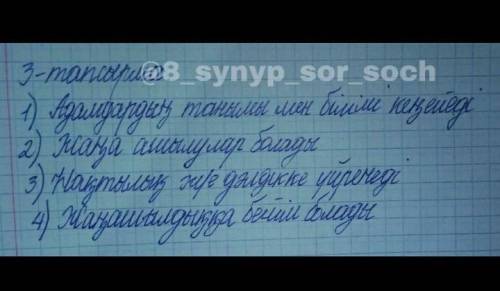 3-тапсырма
@8_synyp_sor_soch
1) Адамдардың танымы мен білімі кеңейеді
2) Жаңа ашылулар болады
3) Нақтылық әрі дәлдікке үйренеді
4) Жаңашылдыққа бейім болады